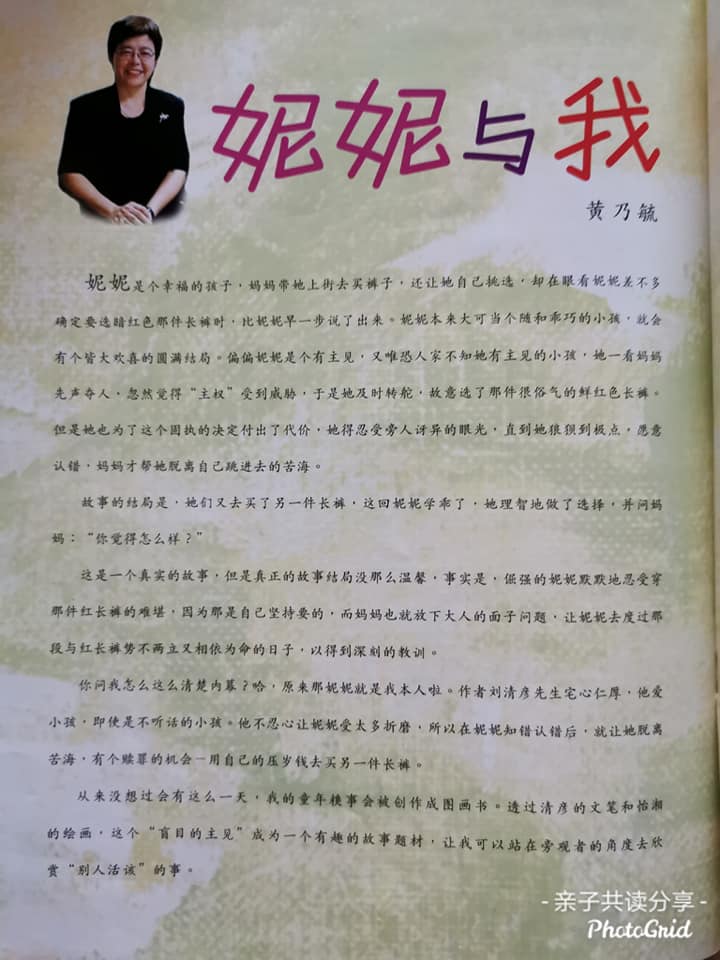 妮妮与我
黄乃毓
妮妮是个幸福的孩子，妈妈带她上街去买裤子，还让她自己挑选，却在眼看妮妮差不多
确定要选暗红色那件长裤时，比妮妮早一步说了出来。妮妮本来大可当个随和乖巧的小孩，就会
有个皆大欢喜的圆满结局。偏偏妮妮是个有主见，又唯恐人家不知她有主见的小孩，她一看妈妈
先声夺人，忽然觉得“主权”受到威胁，于是她及时转舵，故意选了那件很俗气的鲜红色长裤。
但是她也为了这个固执的决定付出了代价，她得忍受旁人讶异的眼光，直到她狼狈到极点，愿意
认错，妈妈才帮她脱离自己跳进去的苦海。
故事的结局是，她们又去买了另一件长裤，这回妮妮学乖了，她理智地做了选择，并问妈
妈：“你觉得怎么样？”
这是一个真实的故事，但是真正的故事结局没那么温馨，事实是，倔强的妮妮默默地忍受穿
那件红长裤的难堪，因为那是自己坚持要的，而妈妈也就放下大人的面子问题，让妮妮去度过那
段与红长裤势不两立又相依为命的日子，以得到深刻的教训。
你问我怎么这么清楚内幕？哈，原来那妮妮就是我本人啦。作者刘清彦先生宅心仁厚，他爱
小孩，即使是不听话的小孩。他不忍心让妮妮受太多折磨，所以在妮妮知错认错后，就让她脱离
苦海，有个赎罪的机会－用自己的压岁钱去买另一件长裤。
从来没想过会有这么一天，我的童年糗事会被创作成图画书。透过清彦的文笔和怡湘
的绘画，这个“盲目的主见”成为一个有趣的故事题材，让我可以站在旁观者的角度去欣
赏“别人活该”的事。
-亲子共读分享-
PhotoGrid